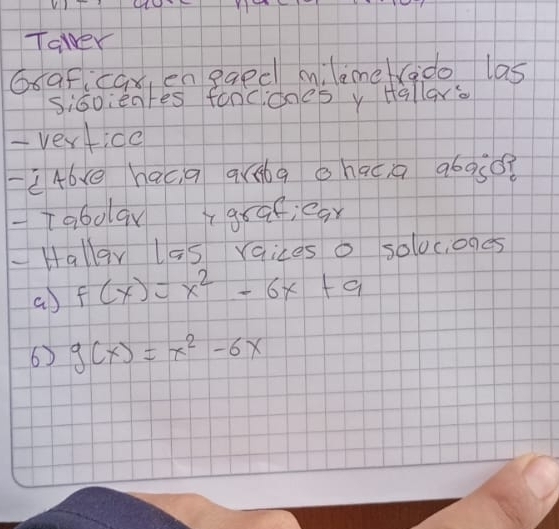 Taller
Graficar, en papel milimetrado las
siguientes funciones y Hallar:
- vertice
- ¿Abre hacia arriba o hacia abajo?
- Tabular y graficar
- Hallar las raices o soluciones
a) f(x) = x² - 6x + 9
b) g(x) = x² - 6x